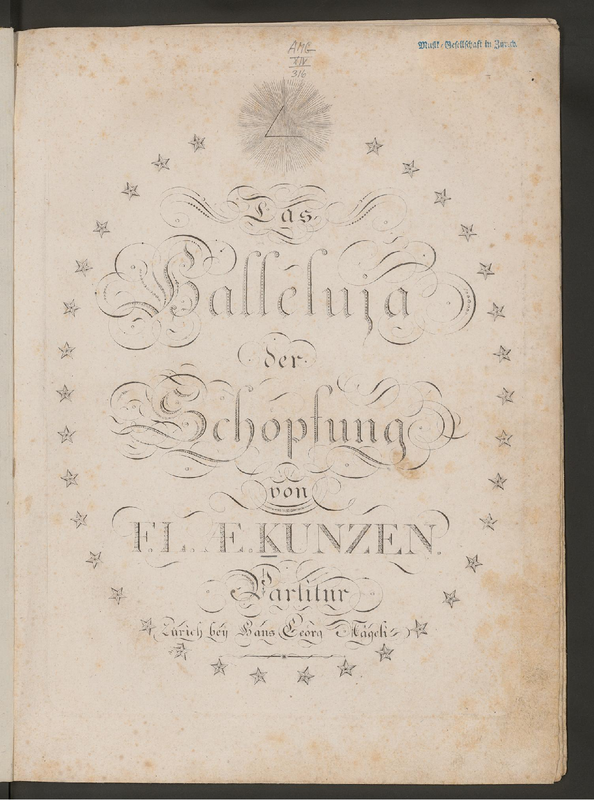 AMG
XIV
316
Musik-Gesellschaft in Zürich.
Das
Halleluja
der
Schöpfung
von
F. L. Æ. KUNZEN.
Partitur
Zürich bey Hans Georg Nägeli